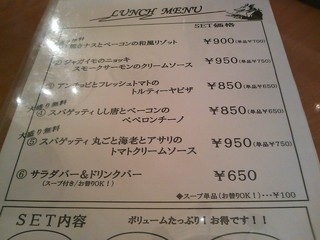 LUNCH MENU
SET価格
大盛り無料
焼きナスとベーコンの和風リゾット ￥900(単品￥700)
② ジャガイモのニョッキ
スモークサーモンのクリームソース ￥950(単品￥750)
③ アンチョビとフレッシュトマトの
トルティーヤピザ ￥850(単品￥650)
大盛り無料
④ スパゲッティ しし唐とベーコンの
ペペロンチーノ ￥850(単品￥650)
大盛り無料
⑤ スパゲッティ 丸ごと海老とアサリの
トマトクリームソース ￥950(単品￥750)
⑥ サラダバー＆ドリンクバー ￥650
(スープ付き/お替りOK！)
◆スープ単品(お替りOK！)…￥100
SET内容 ボリュームたっぷり！お得です！！